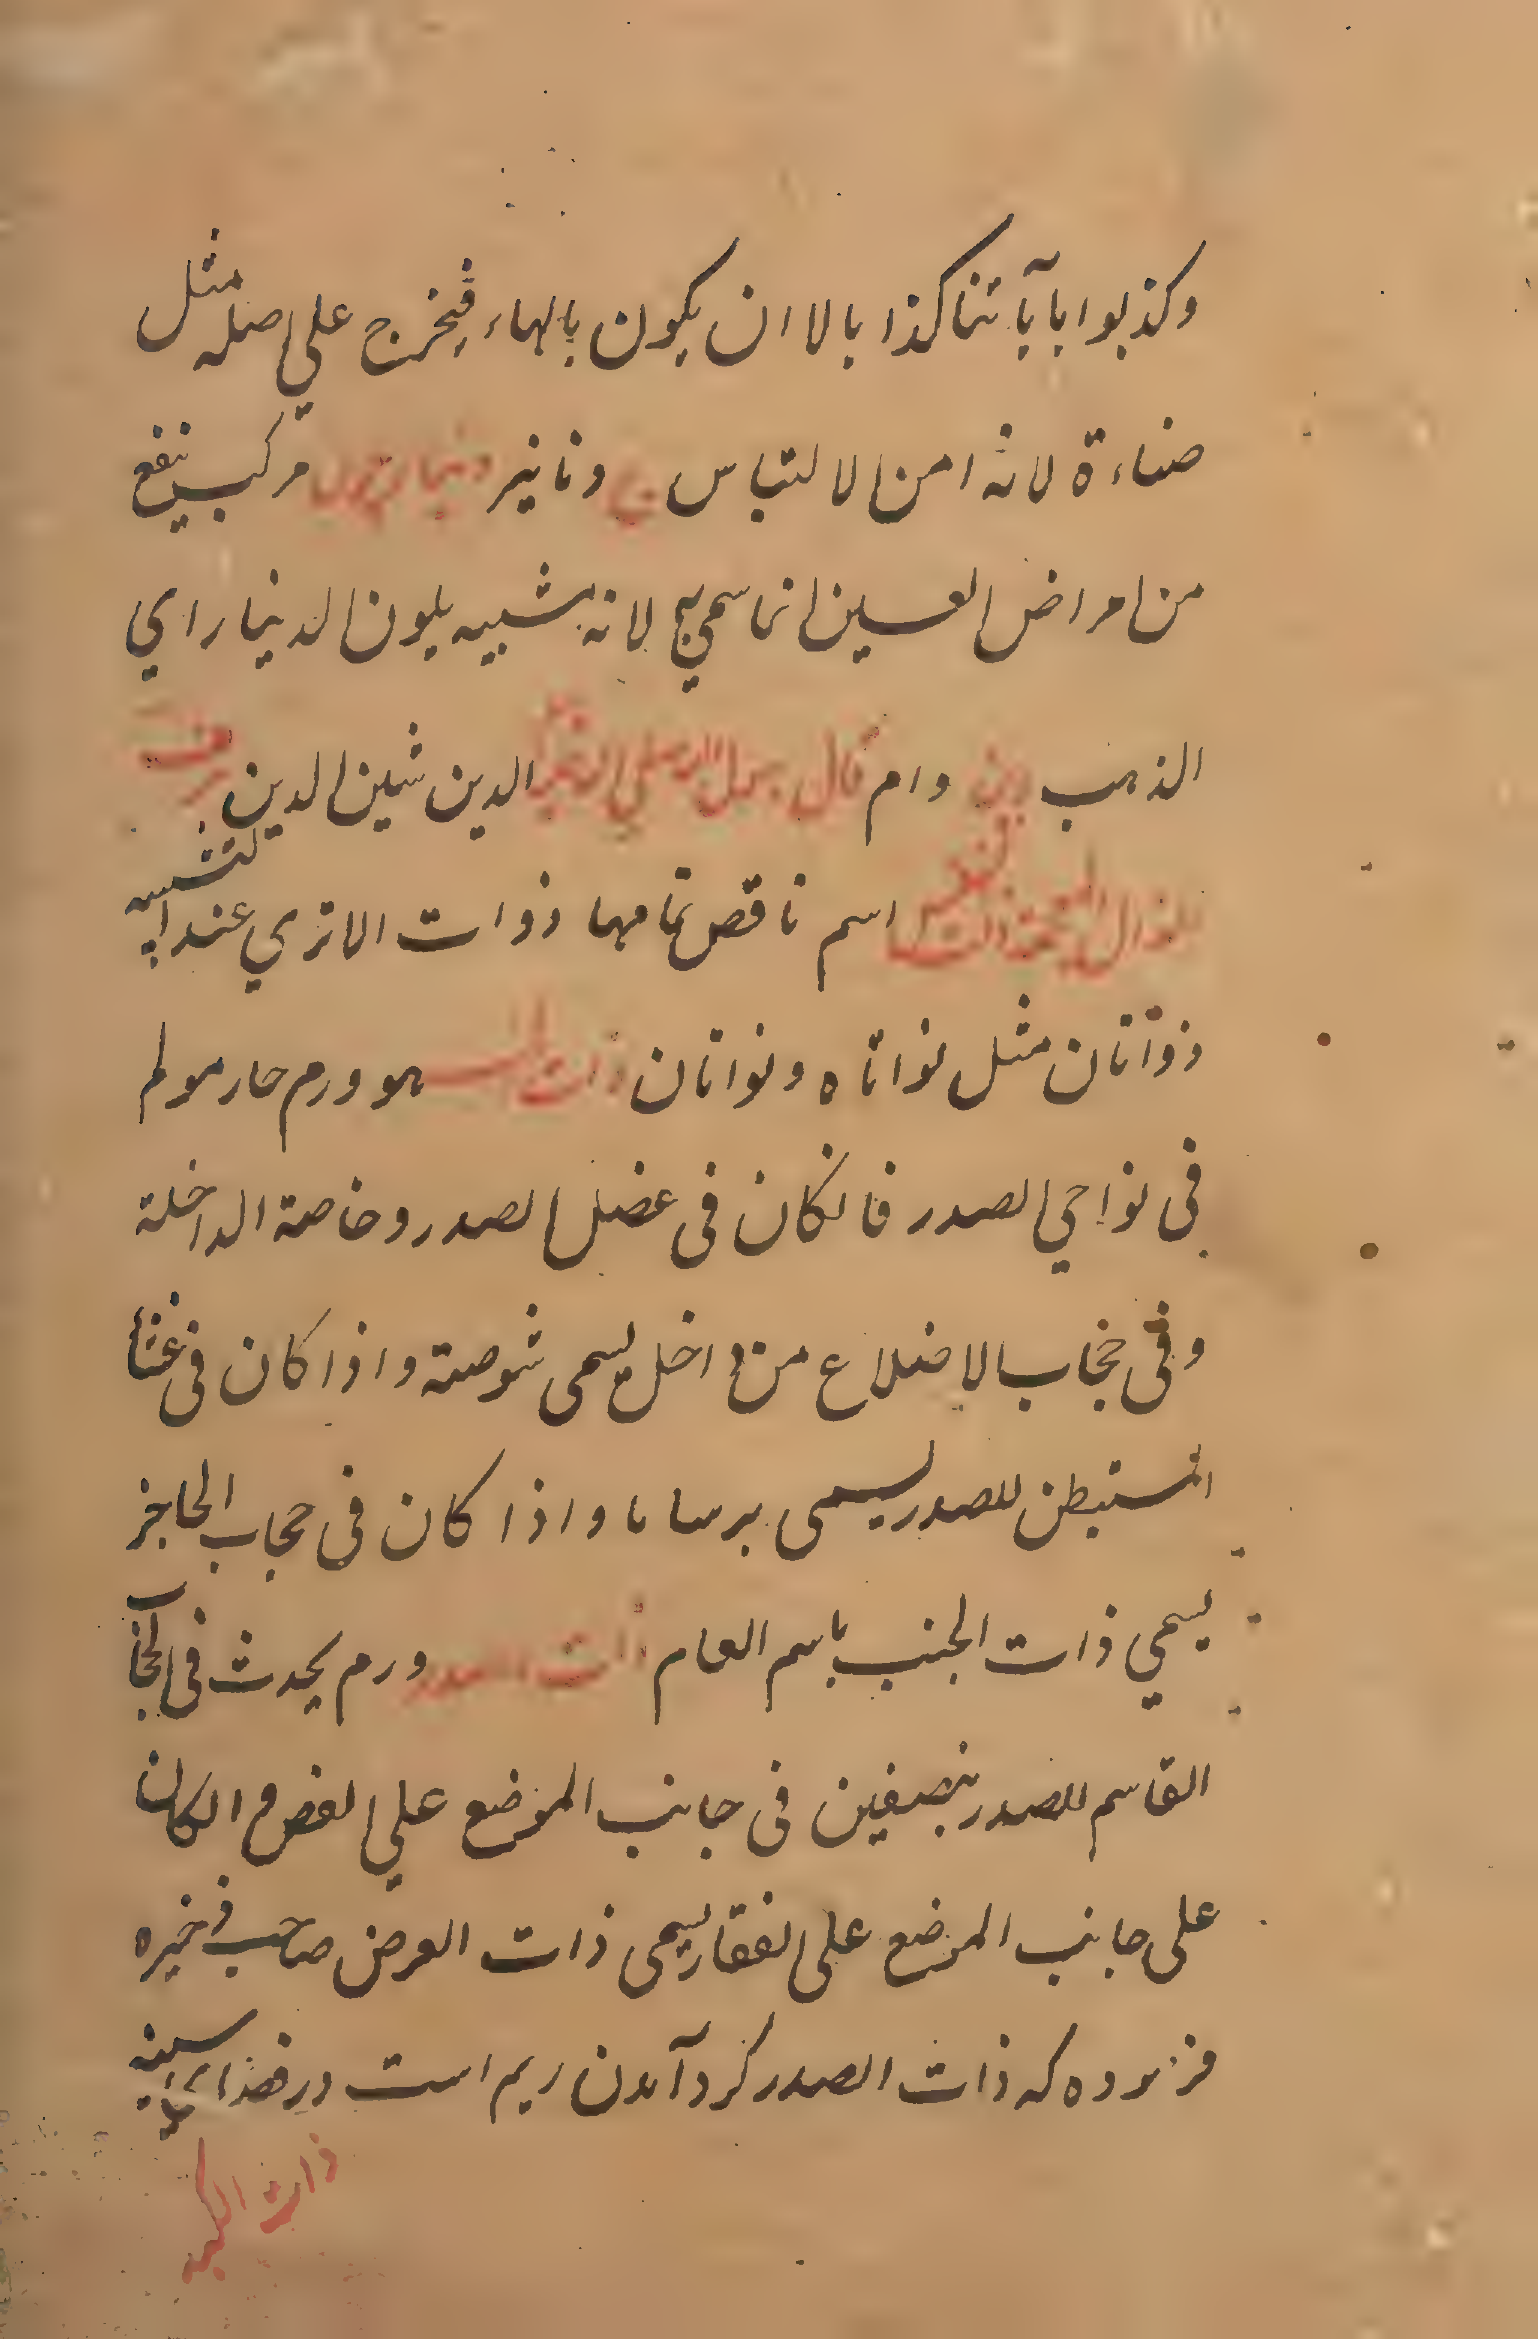 وكذبوا باياتنا كذابا الا ان يكون بالهاء فيخرج علي صله مثل
صناءة لانه امن الالتباس ج دنانير مركب ينفع
من امراض العين انما سمي به لانه شبيه بلون الدينار اي
الذهب دين وام قال الدين شين الدين
اسم ناقص تمامها ذوات الا تري عند التشبيه
ذواتان مثل نواتاه ونواتان ذات الجنب هو ورم حار مولم
في نواحي الصدر فانكان في عضل الصدر وخاصة الداخلة
وفى حجاب الاضلاع من داخل يسمى شوصة واذا كان في غشا
المستبطن للصدر يسمى برساما واذا كان في حجاب الحاجز
يسمي ذات الجنب باسم العام ذات الصدر ورم يحدث في الحجاب
القاسم للصدر بنصفين في جانب الموضع علي القص و الكان
على جانب الموضع على الفقار يسمى ذات العرض صاحب ذخيره
فرموده كه ذات الصدر كرد آمدن ريم است در فضاى سينه
ذات الكبد